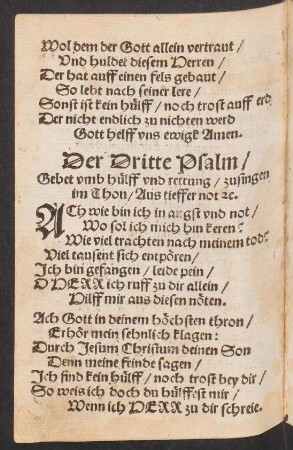 Wol dem der Gott allein vertraut /
Vnd huldet diesem HErren /
Der hat auff einen fels gebaut /
So lebt nach seiner lere /
Sonst ist kein hülff / noch trost auff erd
Der nicht endlich zu nichten werd
Gott helff vns ewigk Amen.
Der Dritte Psalm /
Gebet vmb hülff vnd rettung / zusingen
im Thon / Aus tieffer not ꝛc.
ACh wie bin ich in angst vnd not /
Wo sol ich mich hin keren?
Wie viel trachten nach meinem tod?
Viel tausent sich entpören /
Ich bin gefangen / leide pein /
O HERR ich ruff zu dir allein /
Hilff mir aus diesen nöten.
Ach Gott in deinem höchsten thron /
Erhör mein sehnlich klagen:
Durch Jesum Christum deinen Son
Denn meine feinde sagen /
Ich find kein hülff / noch trost bey dir /
So weis ich doch du hülffest mir /
Wenn ich HERR zu dir schreie.